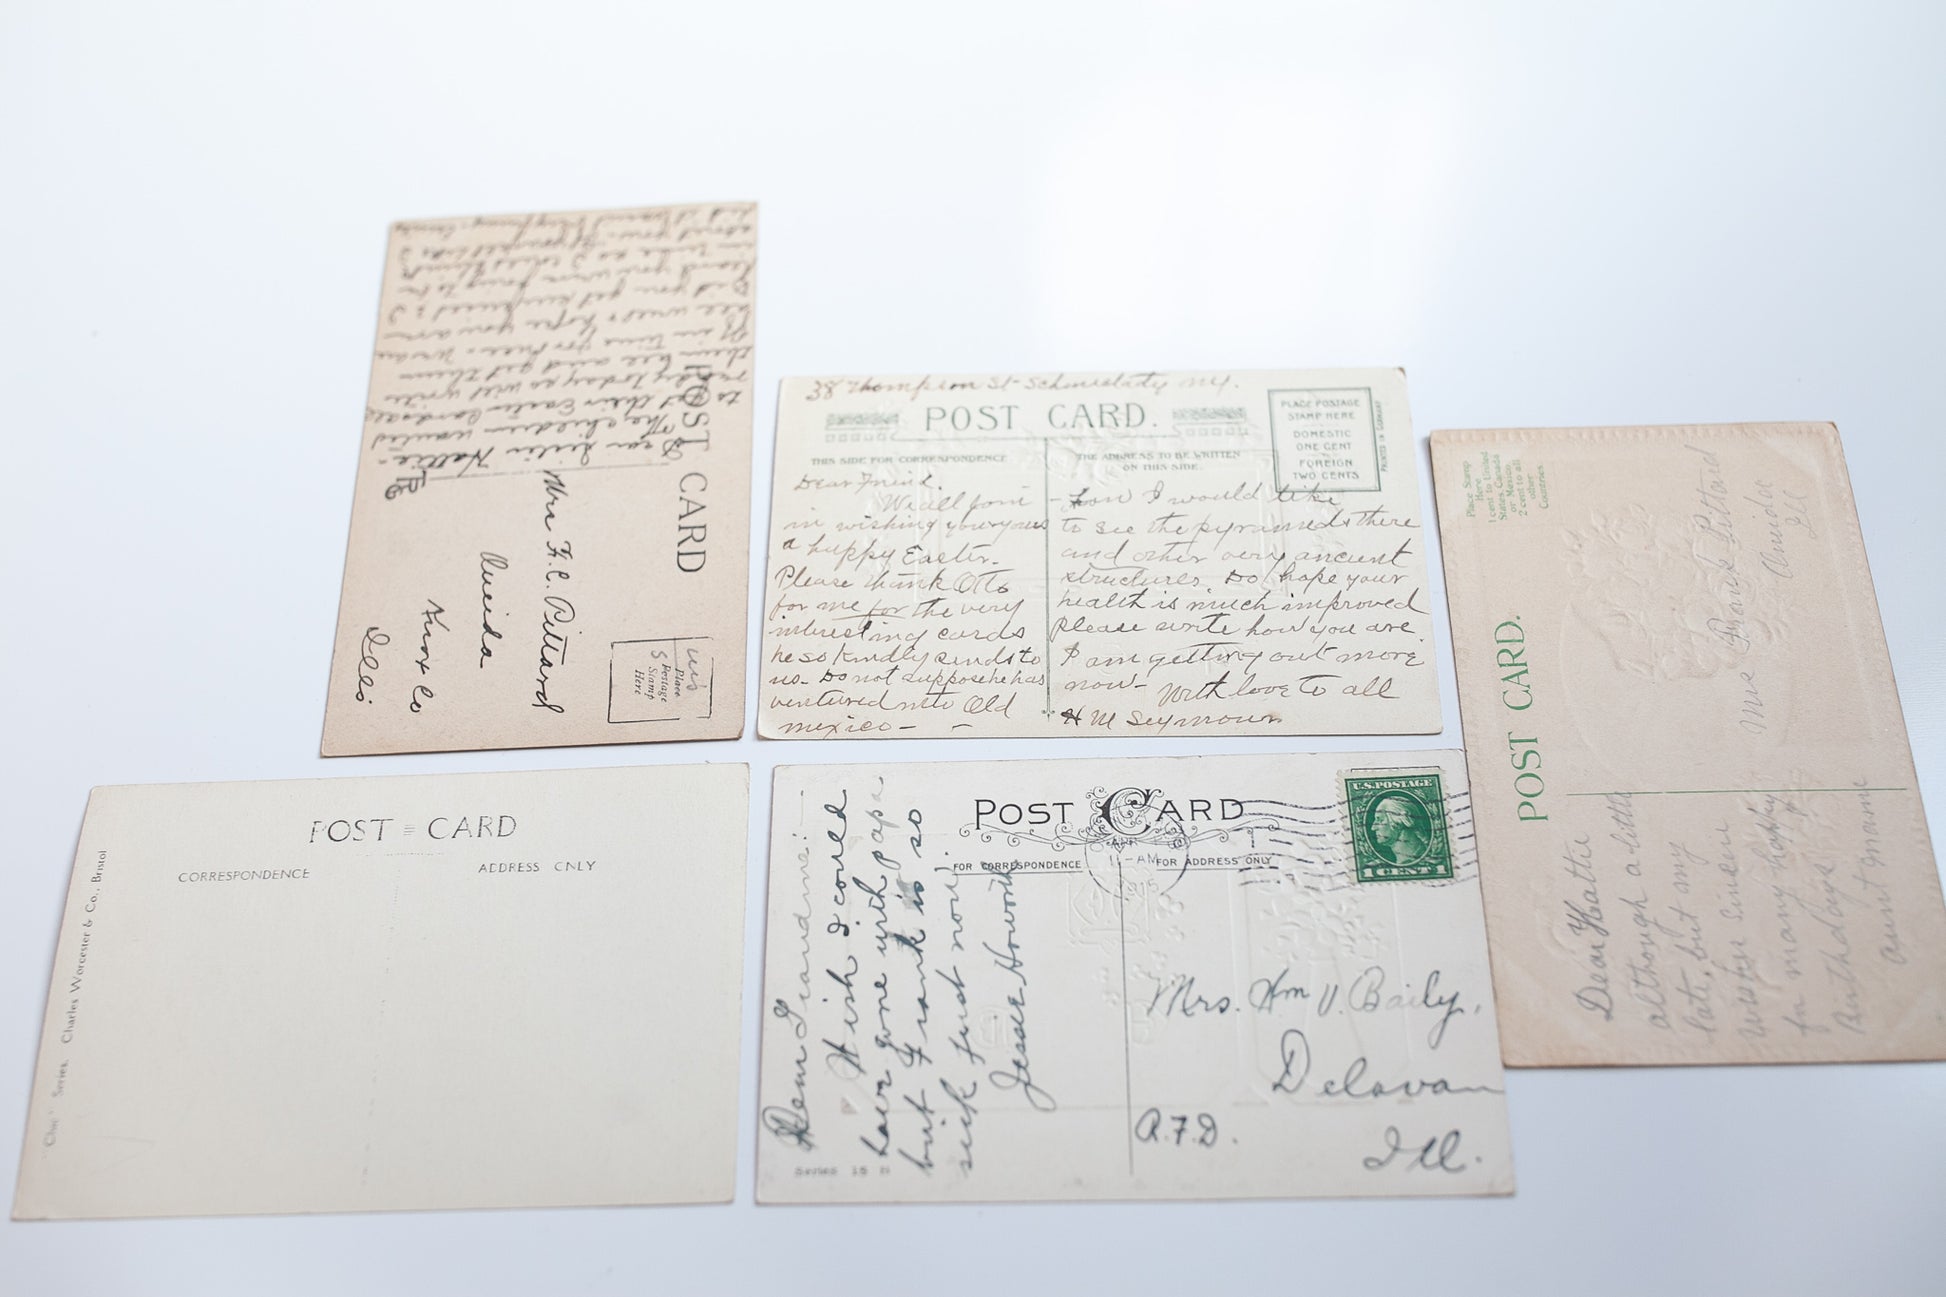 Dear Sister Hattie-
The children wanted
to get their Easter Cards
ready today so will write
them all and get them
off in time for once. We are
all well & hope you are
Did you get
POST CARD
Mrs F. C. Pittard
Oneida
Knox Co
Ills
Place
Postage
Stamp
Here
38 Thompson St- Schenectady N.Y.
POST CARD.
PLACE POSTAGE
STAMP HERE
DOMESTIC
ONE CENT
FOREIGN
TWO CENTS
PRINTED IN GERMANY
THIS SIDE FOR CORRESPONDENCE
THE ADDRESS TO BE WRITTEN
ON THIS SIDE.
Dear Friend.
We all join
in wishing you & yours
a happy Easter.
Please thank Otto
for me for the very
interesting cards
he so kindly sends to
us- Do not suppose he has
ventured into Old
Mexico-
-How I would like
to see the pyrameds there
and other very ancient
structures. Do hope your
health is much improved
please write how you are.
I am getting out more
now- With love to all
H M Seymour
Place Stamp
Here
1 cent to United
States, Canada
or Mexico,
2 cent to all
other
Countries.
POST CARD.
Mrs Frank Pittard
Oneida
Ill
Dear Hattie
although a little
late, but my
wishes sincere
for many happy
Birthdays
Aunt Mame
POST CARD
CORRESPONDENCE
ADDRESS ONLY
"Chic" Series. Charles Worcester & Co., Bristol
POST CARD
FOR CORRESPONDENCE
FOR ADDRESS ONLY
APR
11-AM
U.S. POSTAGE
1 CENT 1
Dear Grandma:-
Wish I could
have gone with papa
but Frank is so
sick just now.
Jessie Howorth
Mrs. Wm V. Baily,
Delavan
R.F.D.
Ill.
Series 18 B